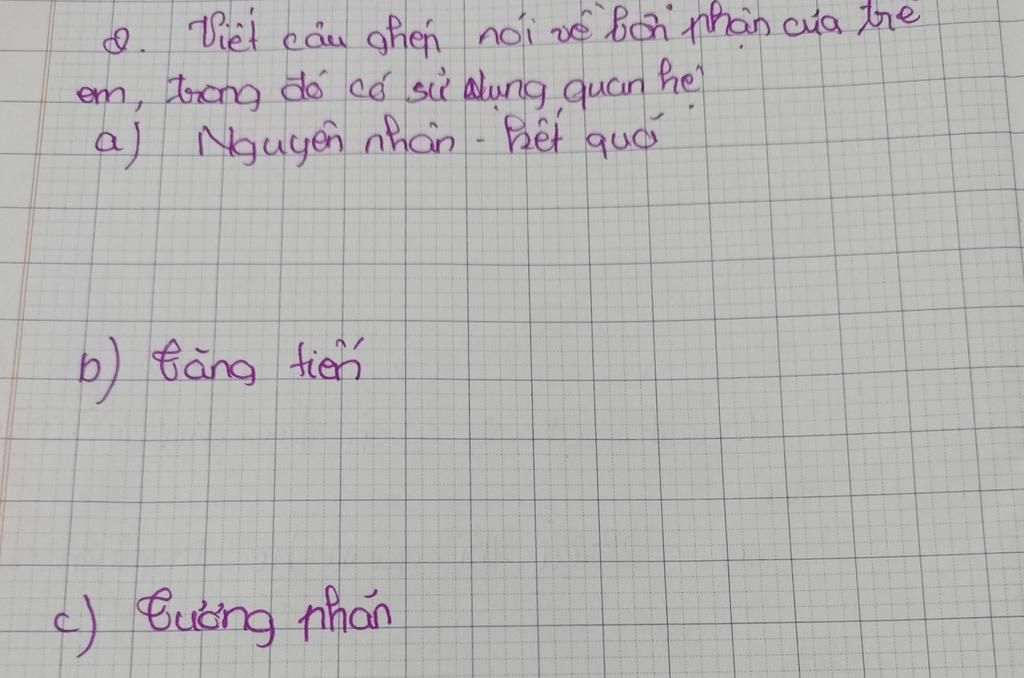 2. Viết câu ghép nói về bổn phận của trẻ
em, trong đó có sử dụng quan hệ
a) Nguyên nhân - kết quả
b) tăng tiến
c) tương phản